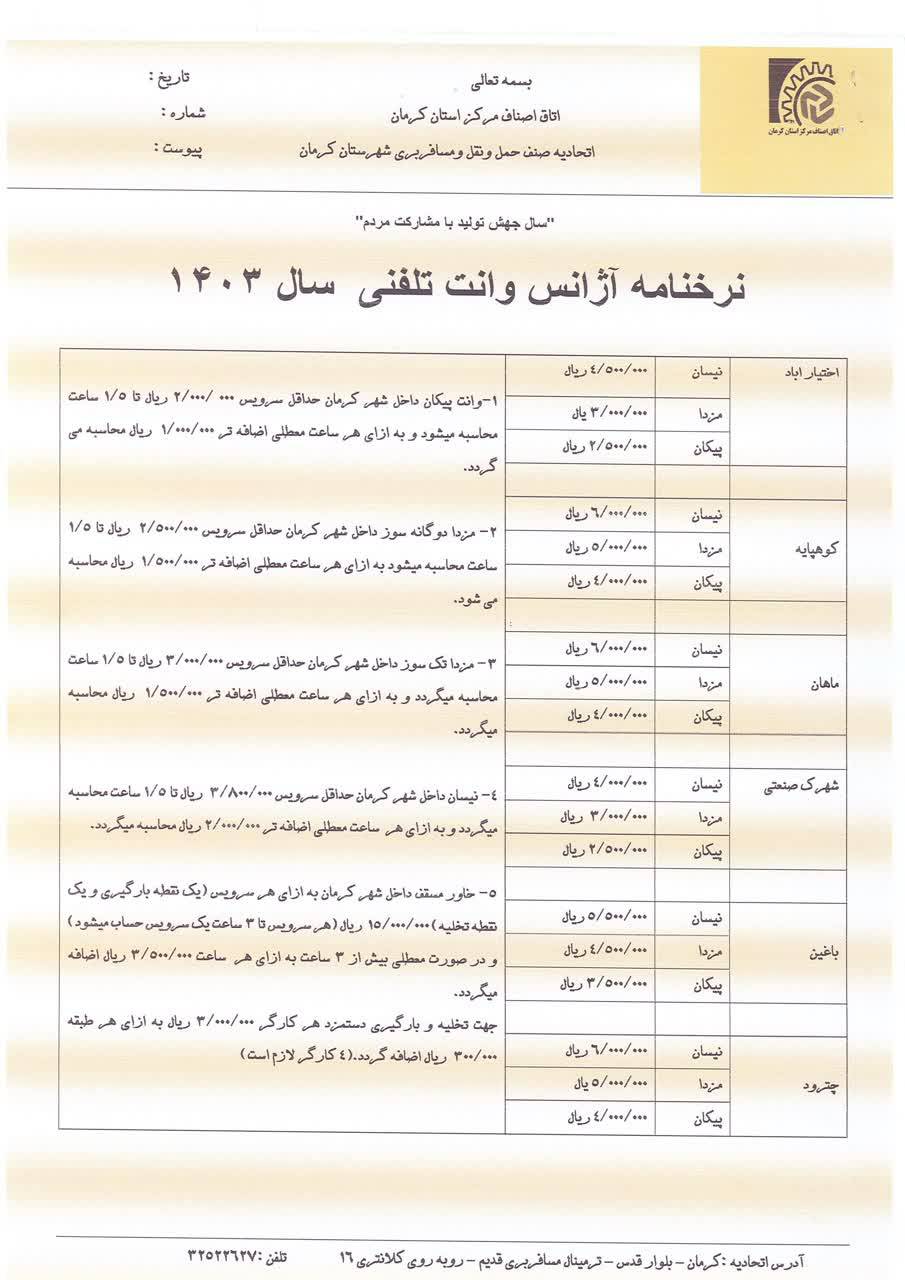 بسمه تعالی
اتاق اصناف مرکز استان کرمان
اتحادیه صنف حمل ونقل ومسافربری شهرستان کرمان
تاریخ :
شماره :
پیوست :
اتاق اصناف مرکز استان کرمان
"سال جهش تولید با مشارکت مردم"
نرخنامه آژانس وانت تلفنی سال ۱۴۰۳
اختیار اباد نیسان ۴/۵۰۰/۰۰۰ ریال
مزدا ۳/۰۰۰/۰۰۰ یال
پیکان ۲/۵۰۰/۰۰۰ ریال
کوهپایه نیسان ۶/۰۰۰/۰۰۰ ریال
مزدا ۵/۰۰۰/۰۰۰ ریال
پیکان ۴/۰۰۰/۰۰۰ ریال
ماهان نیسان ۶/۰۰۰/۰۰۰ ریال
مزدا ۵/۰۰۰/۰۰۰ ریال
پیکان ۴/۰۰۰/۰۰۰ ریال
شهرک صنعتی نیسان ۴/۰۰۰/۰۰۰ ریال
مزدا ۳/۰۰۰/۰۰۰ ریال
پیکان ۲/۵۰۰/۰۰۰ ریال
باغین نیسان ۵/۵۰۰/۰۰۰ ریال
مزدا ۴/۵۰۰/۰۰۰ ریال
پیکان ۳/۵۰۰/۰۰۰ ریال
چترود نیسان ۶/۰۰۰/۰۰۰ ریال
مزدا ۵/۰۰۰/۰۰۰ یال
پیکان ۴/۰۰۰/۰۰۰ ریال
۱-وانت پیکان داخل شهر کرمان حداقل سرویس ۲/۰۰۰/۰۰۰ ریال تا ۱/۵ ساعت
محاسبه میشود و به ازای هر ساعت معطلی اضافه تر ۱/۰۰۰/۰۰۰ ریال محاسبه می
گردد.
۲- مزدا دوگانه سوز داخل شهر کرمان حداقل سرویس ۲/۵۰۰/۰۰۰ ریال تا ۱/۵
ساعت محاسبه میشود به ازای هر ساعت معطلی اضافه تر ۱/۵۰۰/۰۰۰ ریال محاسبه
می شود.
۳- مزدا تک سوز داخل شهر کرمان حداقل سرویس ۳/۰۰۰/۰۰۰ ریال تا ۱/۵ ساعت
محاسبه میگردد و به ازای هر ساعت معطلی اضافه تر ۱/۵۰۰/۰۰۰ ریال محاسبه
میگردد.
۴- نیسان داخل شهر کرمان حداقل سرویس ۳/۸۰۰/۰۰۰ ریال تا ۱/۵ ساعت محاسبه
میگردد و به ازای هر ساعت معطلی اضافه تر ۲/۰۰۰/۰۰۰ ریال محاسبه میگردد.
۵- خاور مسقف داخل شهر کرمان به ازای هر سرویس (یک نقطه بارگیری و یک
نقطه تخلیه)۱۵/۰۰۰/۰۰۰ ریال (هر سرویس تا ۳ ساعت یک سرویس حساب میشود)
و در صورت معطلی بیش از ۳ ساعت به ازای هر ساعت ۳/۵۰۰/۰۰۰ ریال اضافه
میگردد.
جهت تخلیه و بارگیری دستمزد هر کارگر ۳/۰۰۰/۰۰۰ ریال به ازای هر طبقه
۳۰۰/۰۰۰ ریال اضافه گردد.(۴ کارگر لازم است)
آدرس اتحادیه :کرمان – بلوار قدس – ترمینال مسافربری قدیم – روبه روی کلانتری ۱۶ تلفن :۳۲۵۲۲۶۲۷